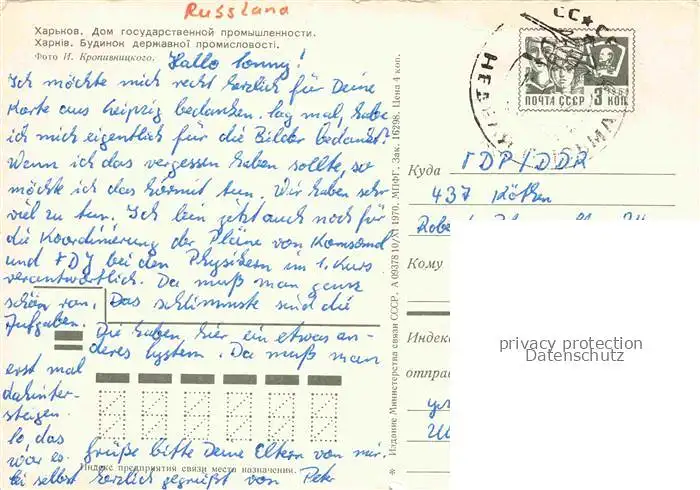 Russland
Харьков. Дом государственной промышленности.
Харків. Будинок державної промисловості.
Фото И. Кропивницкого.
Hallo Conny!
Ich möchte mich recht herzlich für Deine
Karte aus Leipzig bedanken. Sag mal, habe
ich mich eigentlich für die Bilder bedankt?
Wenn ich das vergessen haben sollte, so
möchte ich das hiermit tun. Wir haben sehr
viel zu tun. Ich bin jetzt auch noch für
die Koordinierung der Pläne von Komsomol
und FDJ bei den Physikern im 1. Kurs
verantwortlich. Da muß man ganz
schön ran. Das schlimmste sind die
Aufgaben. Die haben hier ein etwas an-
deres System. Da muß man
erst mal
dahinter-
steigen.
So, das
wär es. Grüße bitte Deine Eltern von mir.
Sei selbst herzlich gegrüßt von Peter
Индекс предприятия связи места назначения.
* Издание Министерства связи СССР. А 09378 10/XI 1970. МПФГ. Зак. 16298. Цена 4 коп.
СС★СС
ПОЧТА СССР 3 КОП
Куда ГДР / DDR
437 Köthen
Кому
Индекс
отправ
ул
privacy protection
Datenschutz